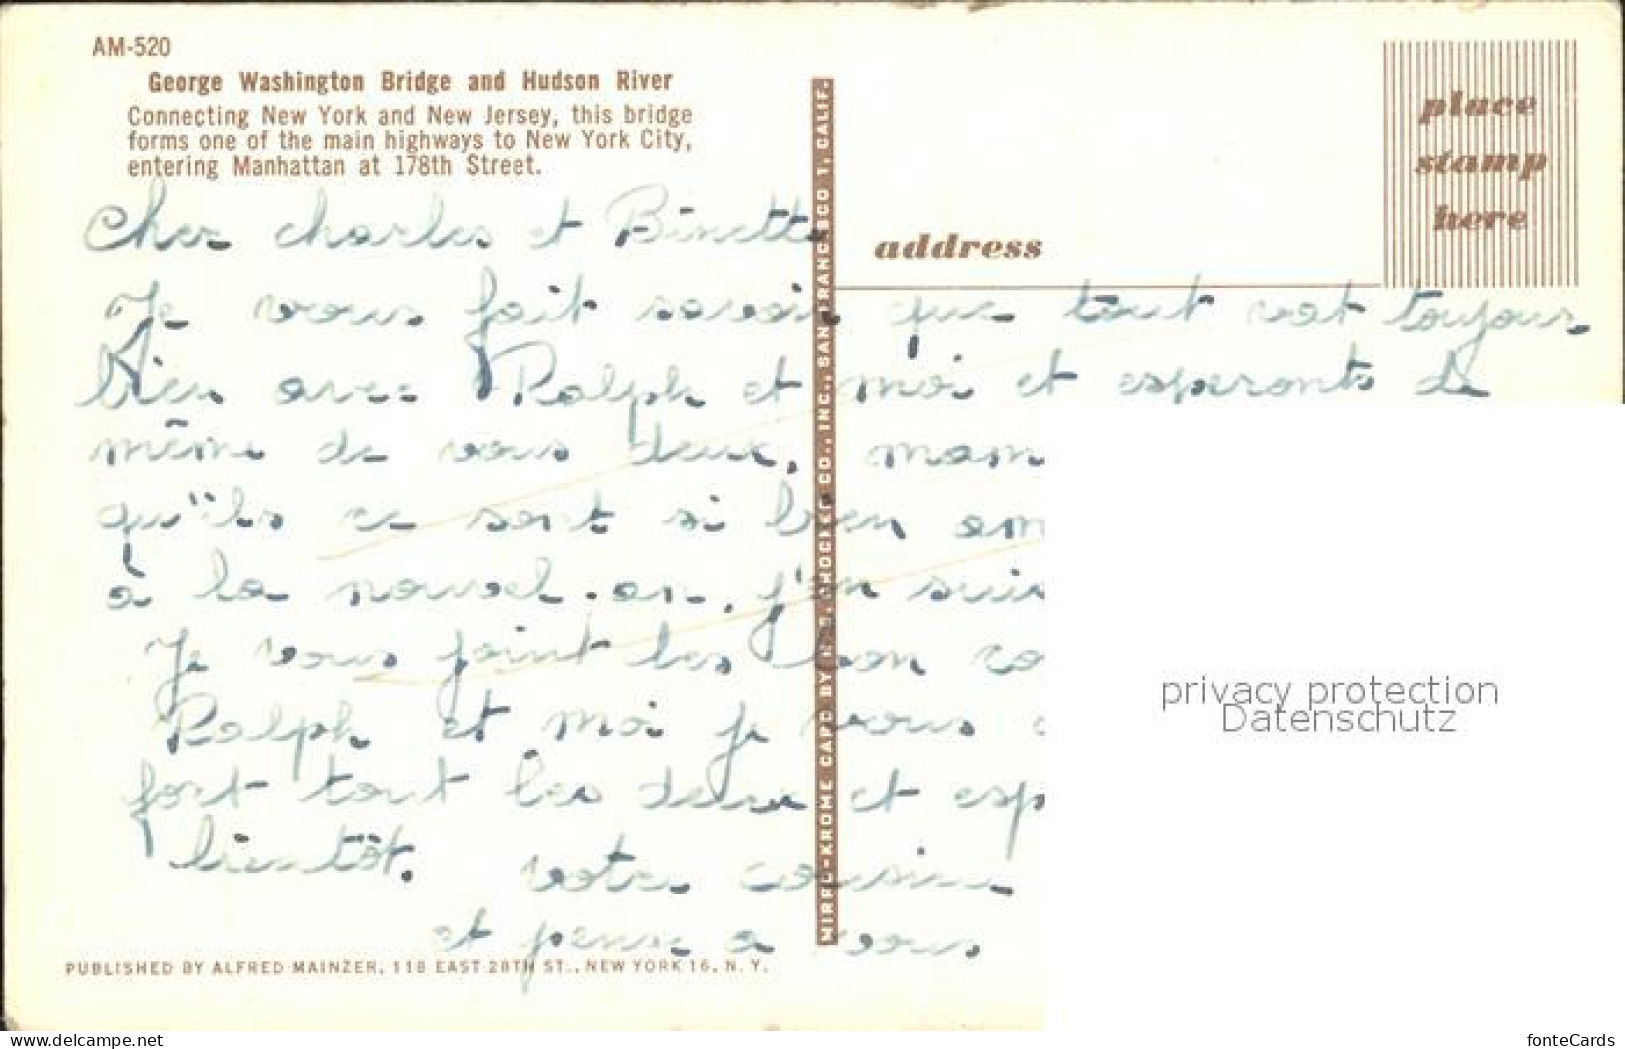 AM-520
George Washington Bridge and Hudson River
Connecting New York and New Jersey, this bridge
forms one of the main highways to New York City,
entering Manhattan at 178th Street.
place
stamp
here
address
Cher charles et Binette
Je vous fait savoir que tout vat toujour
bien avec Ralph et moi et esperonts de
même de vous deux, mam
qu'ils ce sont si bien am
à la nouvel-an, j'en suis
Je vous joint les bon co
Ralph et moi je vous
fort tout les deux et esp
bientôt. votre cousine
et pense a vous
MIRRO-KROME CARD BY H.S. CROCKER CO., INC., SAN FRANCISCO 1, CALIF.
PUBLISHED BY ALFRED MAINZER, 118 EAST 28TH ST., NEW YORK 16, N. Y.
privacy protection
Datenschutz
www.delcampe.net
fonteCards